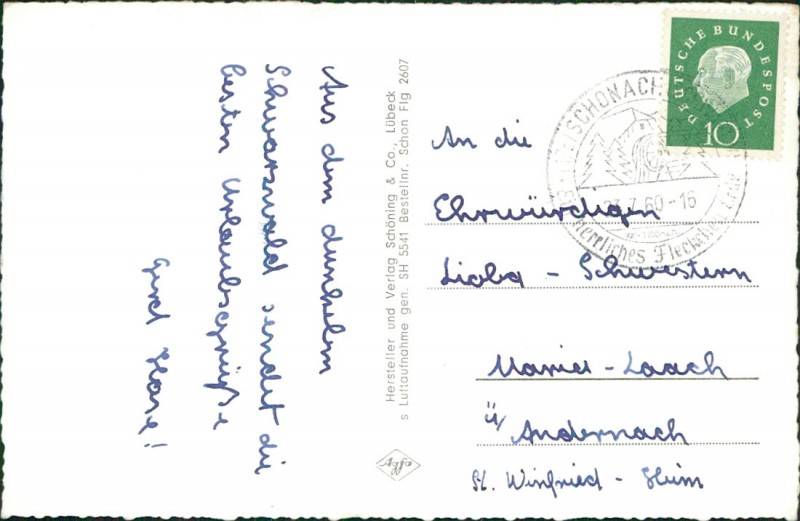 Aus dem dunkelem
Schwarzwald sendet die
besten Urlaubsgrüße
Gerd Hose!
Hersteller und Verlag Schöning & Co., Lübeck
s Luftaufnahme gen. SH 5541 Bestellnr. Schon Flg 2607
DEUTSCHE BUNDESPOST
10
SCHONACH
23.7.60-16
herrliches Fleckchen Erde
An die
Ehrwürdigen
Lioba - Schwestern
Maria - Laach
ü/ Andernach
St. Winfried - Heim